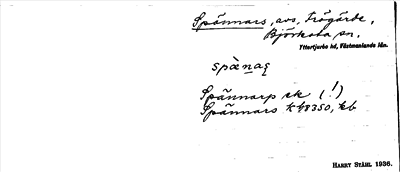 Spännars, avs, frögärbe,
Björksta sn.
Yttertjurbo hd, Västmanlands län.
spä̀naş
Spännarp ek (!)
Spännars K48350, kb
HARRY STÅHL 1936.